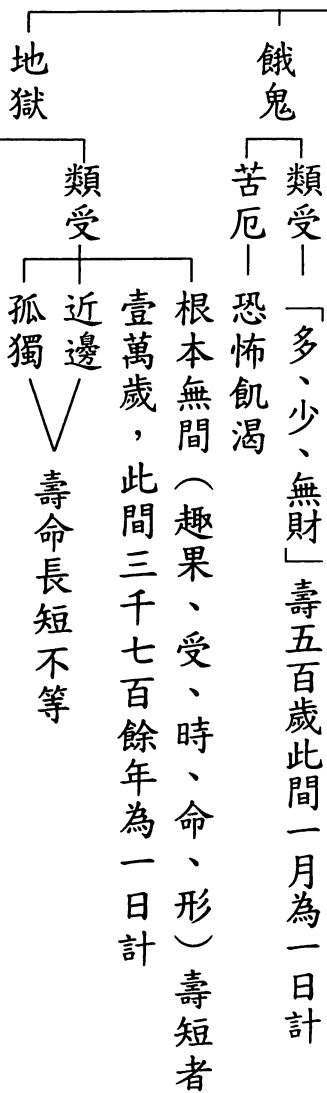 餓鬼
類受
「多、少、無財」壽五百歲此間一月為一日計
苦厄
恐怖飢渴
地獄
類受
根本無間（趣果、受、時、命、形）壽短者
壹萬歲，此間三千七百餘年為一日計
近邊
孤獨
壽命長短不等